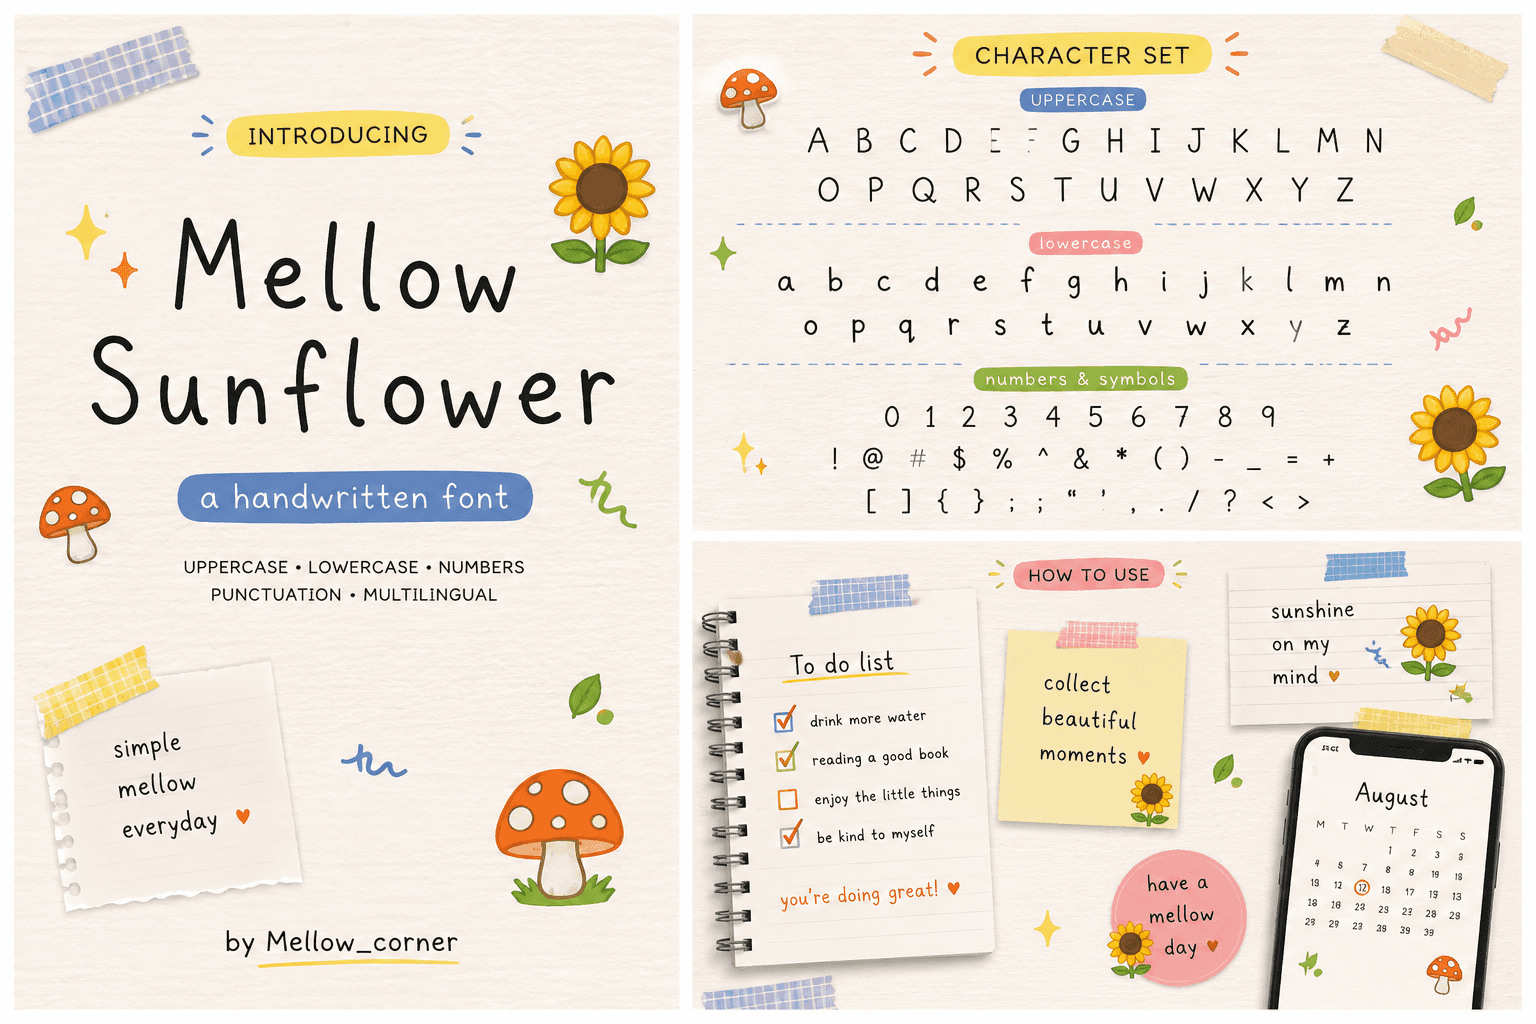 INTRODUCING
Mellow
Sunflower
a handwritten font
UPPERCASE • LOWERCASE • NUMBERS
PUNCTUATION • MULTILINGUAL
simple
mellow
everyday
by Mellow_corner
CHARACTER SET
UPPERCASE
A B C D E F G H I J K L M N
O P Q R S T U V W X Y Z
lowercase
a b c d e f g h i j k l m n
o p q r s t u v w x y z
numbers & symbols
0 1 2 3 4 5 6 7 8 9
! @ # $ % ^ & * ( ) - _ = +
[ ] { } ; ; “ ’ , . / ? < >
HOW TO USE
To do list
drink more water
reading a good book
enjoy the little things
be kind to myself
you're doing great!
collect
beautiful
moments
sunshine
on my
mind
have a
mellow
day
August
M T W T F S S